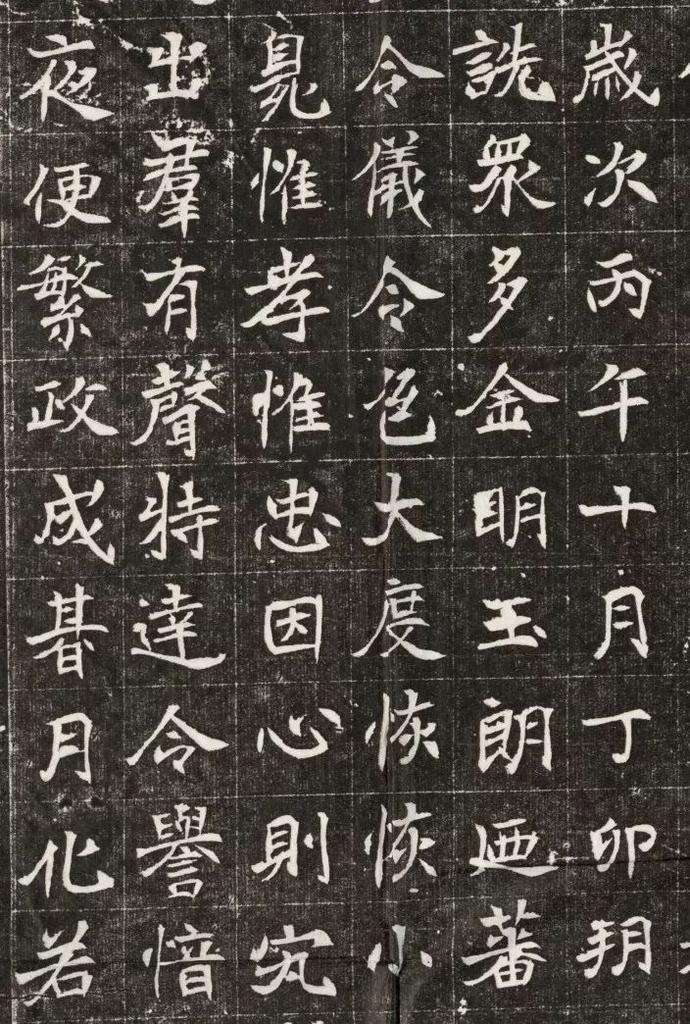 歲次丙午十月丁卯朔
詵衆多金明玉朗迺蕃
令儀令色大度恢恢小
臮惟孝惟忠因心則宄
出羣有聲特達令譽愔
夜便繁政成朞月化若